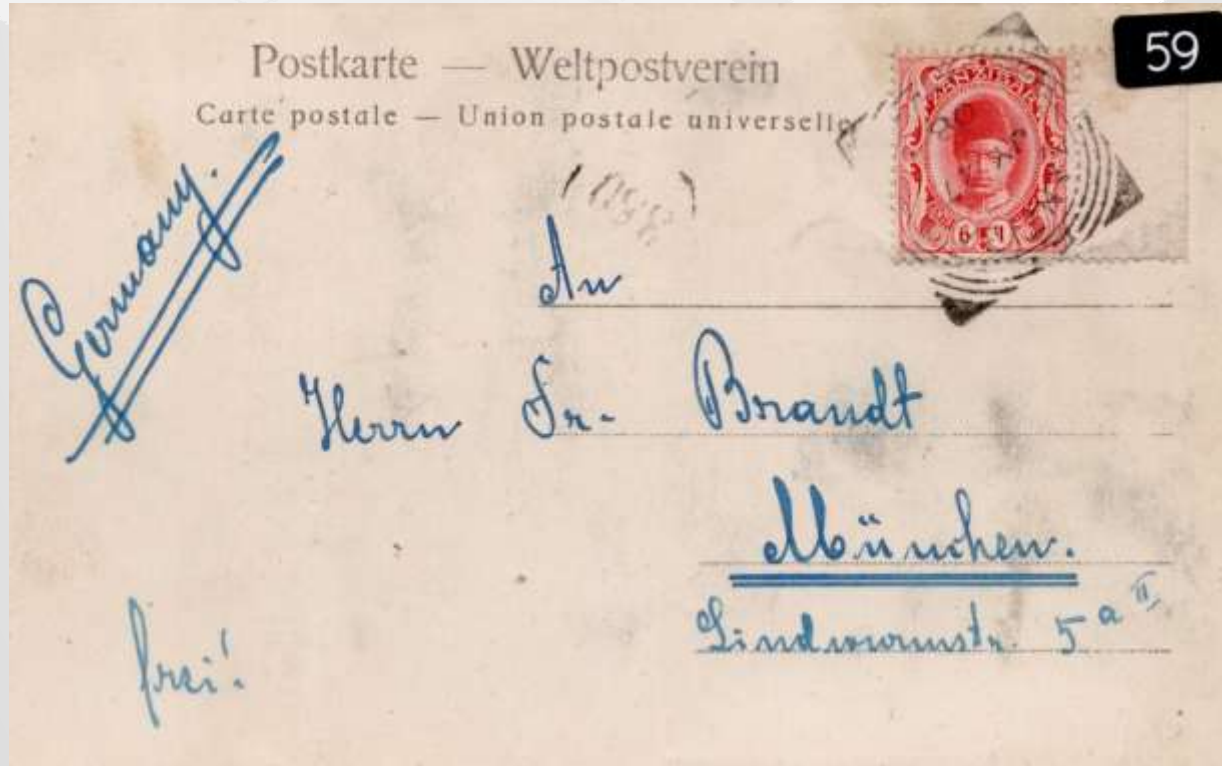 59
Postkarte — Weltpostverein
Carte postale — Union postale universelle
ZANZIBAR
6 ٦
Germany.
An
Herrn Fr. Brandt
München.
Lindwurmstr. 5a II
frei!